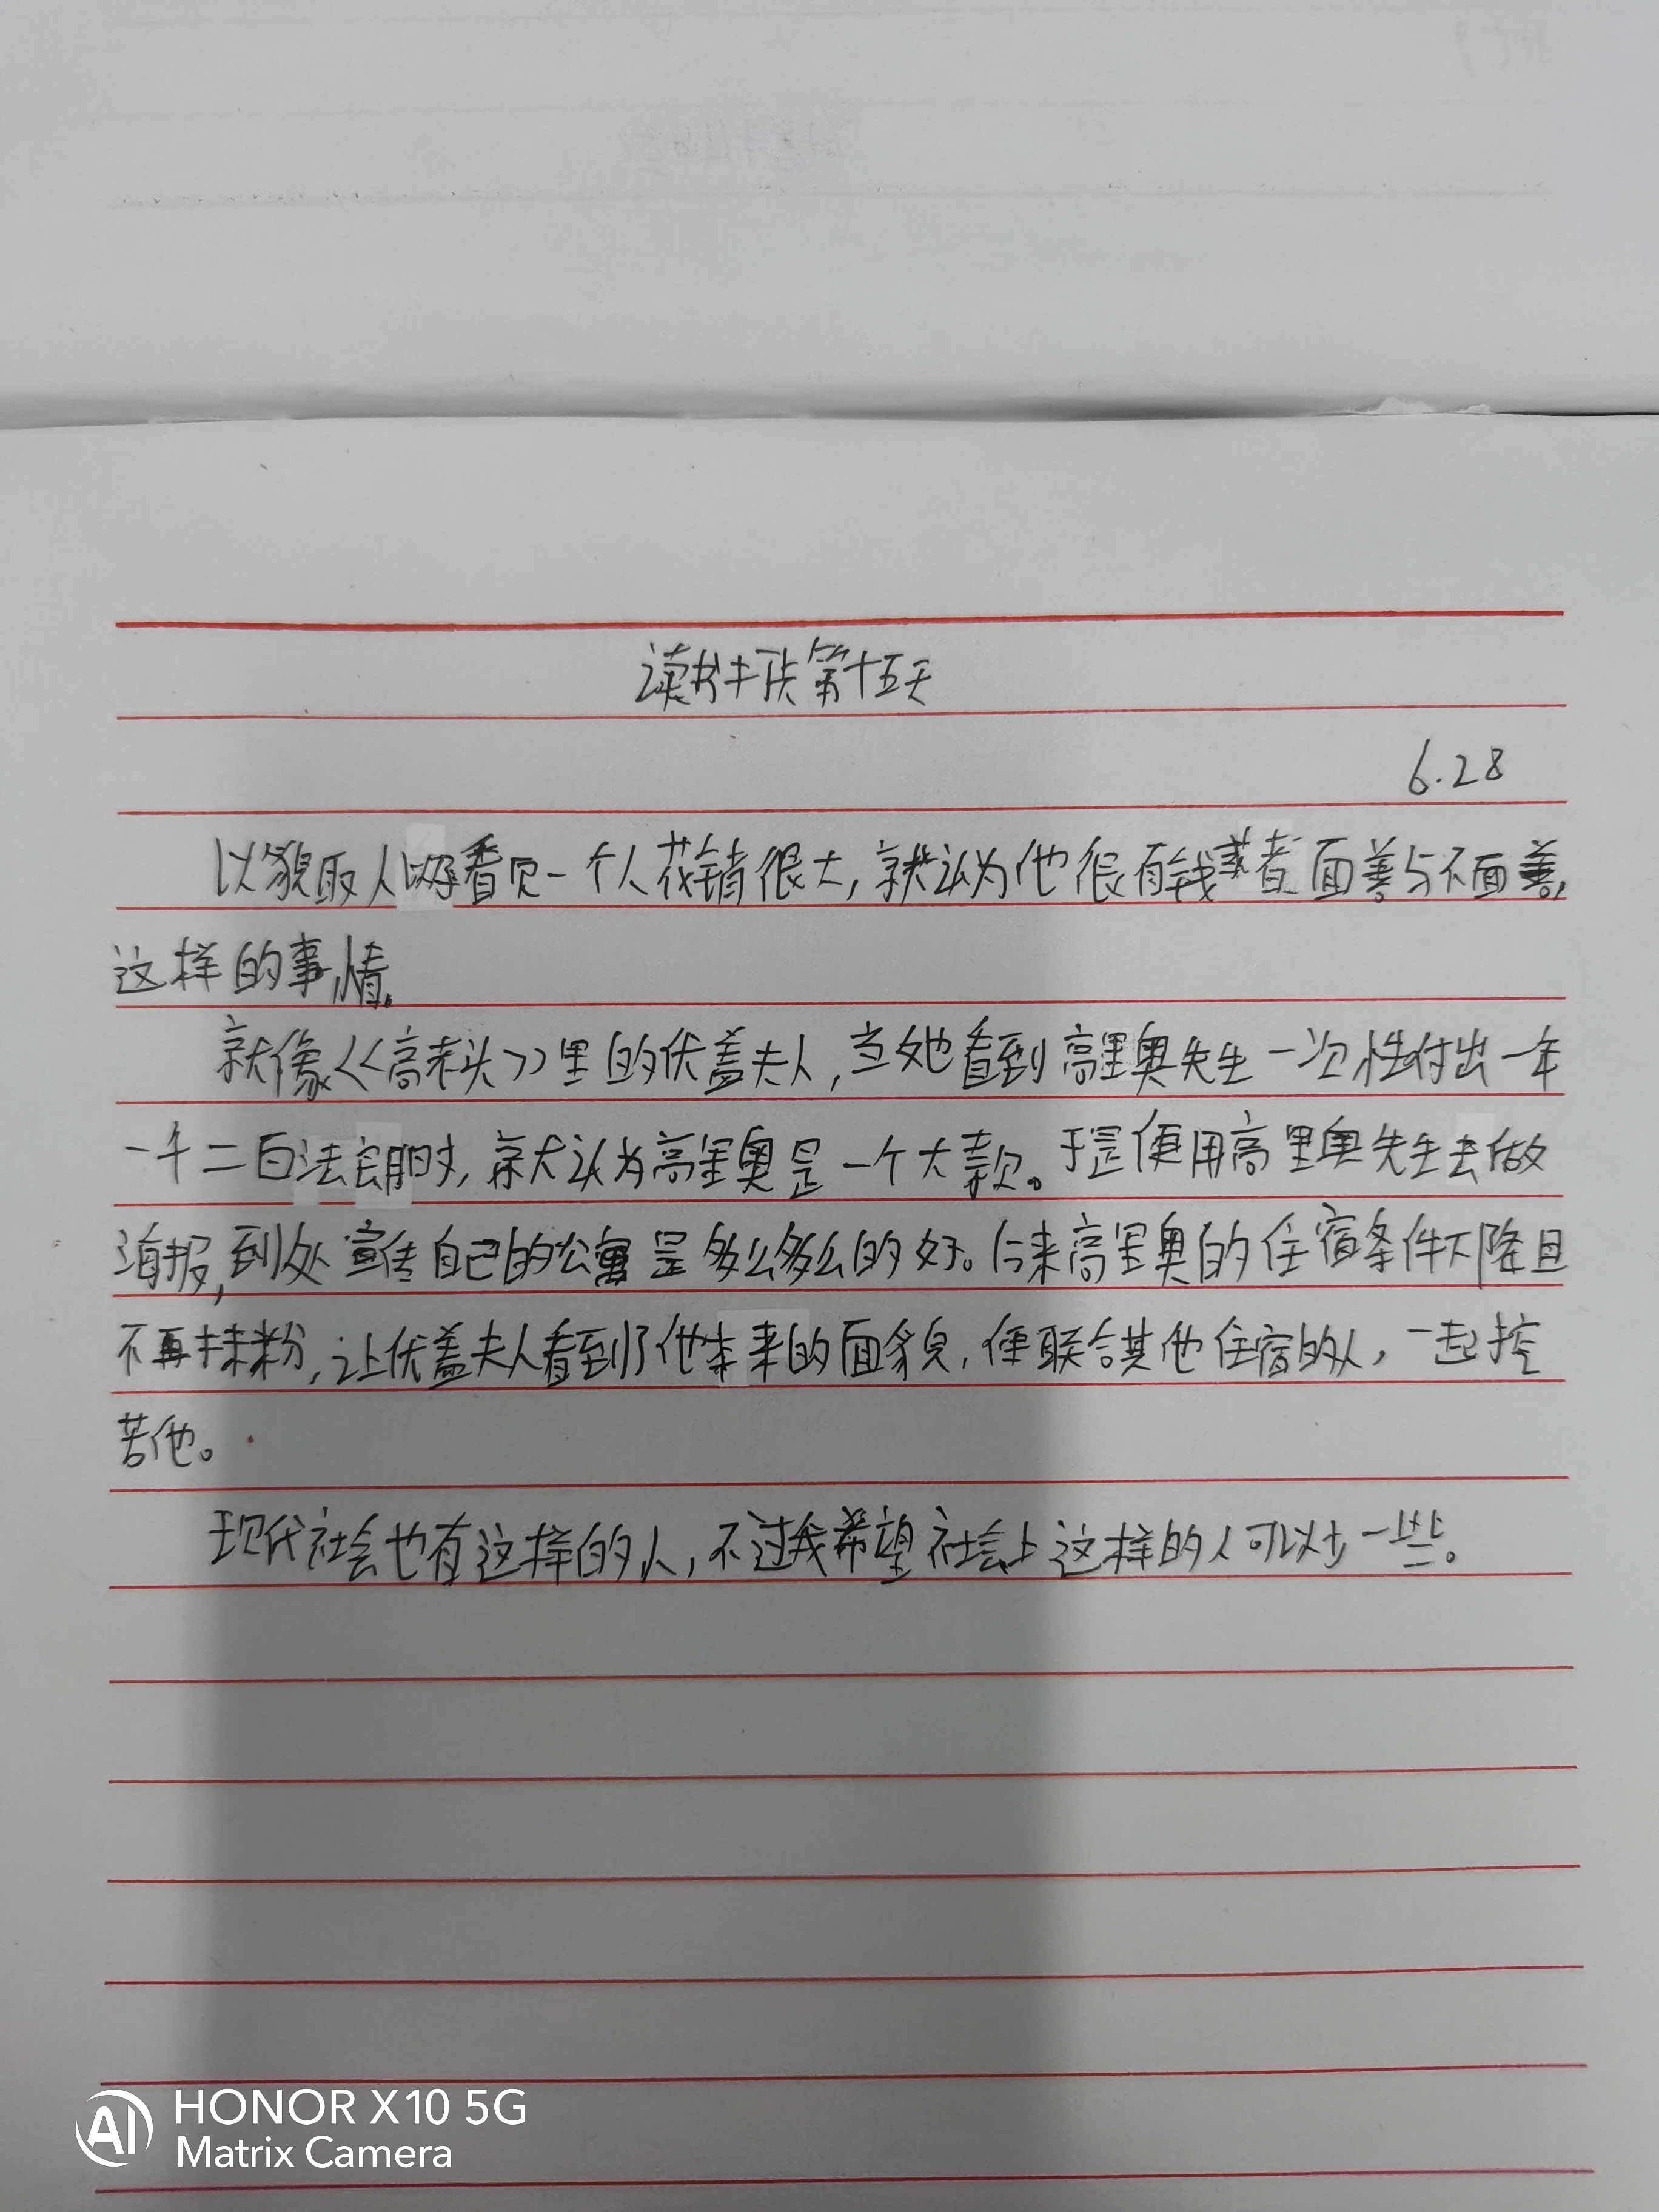 读书生活第十五天
6.28
以貌取人好看见一个人花销很大,就认为他很有钱或者面善与不面善,
这样的事情。
就像《高老头》里的伏盖夫人,当她看到高里奥先生一次性付出一年
一千二百法郎时,就认为高里奥是一个大款。于是便用高里奥先生去做
海报,到处宣传自己的公寓是多么多么的好。后来高里奥的住宿条件下降且
不再抹粉,让伏盖夫人看到了他本来的面貌,便联合其他住宿的人,一起挖
苦他。
现代社会也有这样的人,不过我希望社会上这样的人可以少一些。
HONOR X10 5G
Matrix Camera